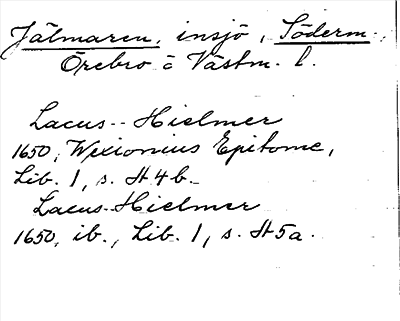 Jälmaren, insjö, Söderm.,
Örebro o Västm. l.
Lacus -- Hielmer
1650, Wexionius Epitome,
Lib. 1, s. H4b.
Lacus-Hielmer
1650, ib., Lib. 1, s. H5a.